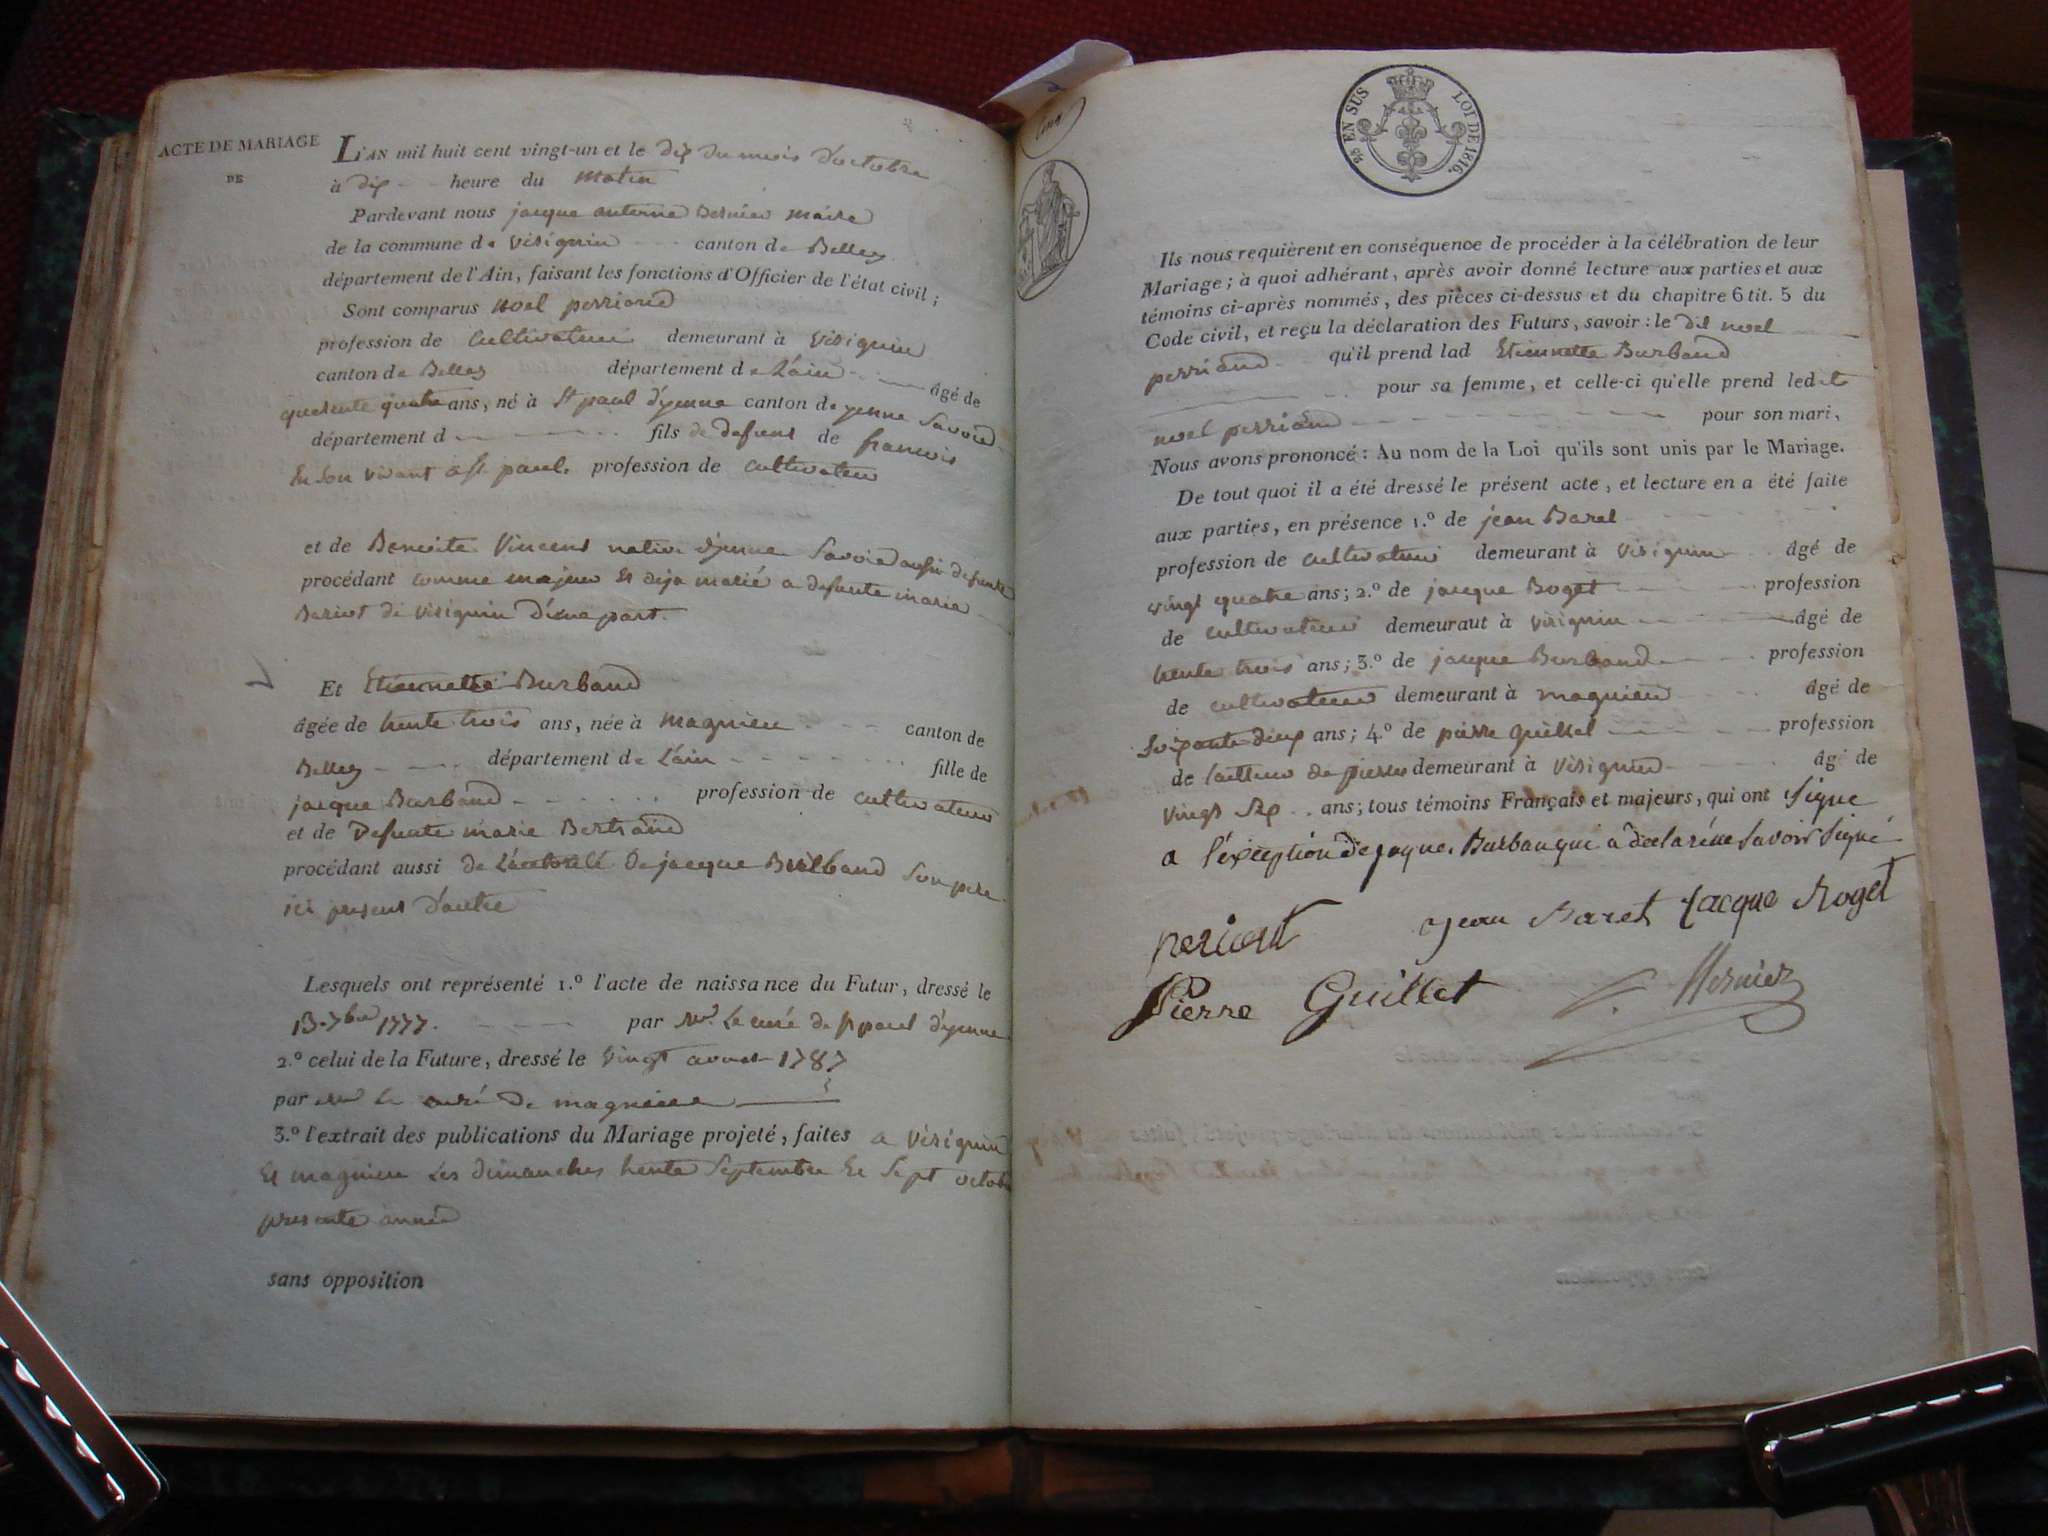 ACTE DE MARIAGE
DE
L'AN mil huit cent vingt-un et le dix du mois d'octobre
à dix heure du matin
Pardevant nous jacque anterme Bernier maire
de la commune de virignin canton de Belley
département de l'Ain, faisant les fonctions d'Officier de l'état civil;
Sont comparus noel perriand
profession de cultivateur demeurant à virignin
canton de Belley département de L'ain âgé de
quarente quatre ans, né à St paul d'yenne canton de yenne Savoie
département d fils de defunt de francois
En Son vivant a St. paul. profession de cultivateur
et de Benoite Vincent native d'yenne Savoie aussi defunte
procédant comme majeur Et deja marié a defunte marie
Bariot de virignin d'une part.
Et Etiennette Burband
âgée de trente trois ans, née à magnieu canton de
Belley département de L'ain fille de
jacque Burband profession de cultivateur
et de Defunte marie Bertrand
procédant aussi de L'autorité de jacque Burband Son pere
ici present d'autre
Lesquels ont représenté 1.º l'acte de naissance du Futur, dressé le
13.7bre 1777. par Mr. Le curé de St paul d'yenne
2.º celui de la Future, dressé le vingt aoust 1787
par Mr Le curé de magnieu
3.º l'extrait des publications du Mariage projeté, faites a virignin
Et magnieu Les dimanches trente Septembre Et Sept octobre
presente année
sans opposition
cinq
EN SUS
LOI DE 1816.
Ils nous requièrent en conséquence de procéder à la célébration de leur
Mariage; à quoi adhérant, après avoir donné lecture aux parties et aux
témoins ci-après nommés, des pièces ci-dessus et du chapitre 6 tit. 5 du
Code civil, et reçu la déclaration des Futurs, savoir: le dit noel
perriand qu'il prend lad Etiennette Burband
pour sa femme, et celle-ci qu'elle prend ledit
noel perriand pour son mari,
Nous avons prononcé: Au nom de la Loi qu'ils sont unis par le Mariage.
De tout quoi il a été dressé le présent acte, et lecture en a été faite
aux parties, en présence 1.º de jean Baret
profession de cultivateur demeurant à virignin âgé de
vingt quatre ans; 2.º de jacque Roget profession
de cultivateur demeuraut à virignin âgé de
trente trois ans; 3.º de jacque Burband profession
de cultivateur demeurant à magnieu âgé de
Soixante deux ans; 4.º de pierre guillet profession
de tailleur de pierres demeurant à virignin âgé de
vingt Six ans; tous témoins Français et majeurs, qui ont signé
a l'exception de jaque. Burban qui a déclaré ne Savoir Signé
periant jean Baret Jacque Roget
Pierre Guillet Bernier